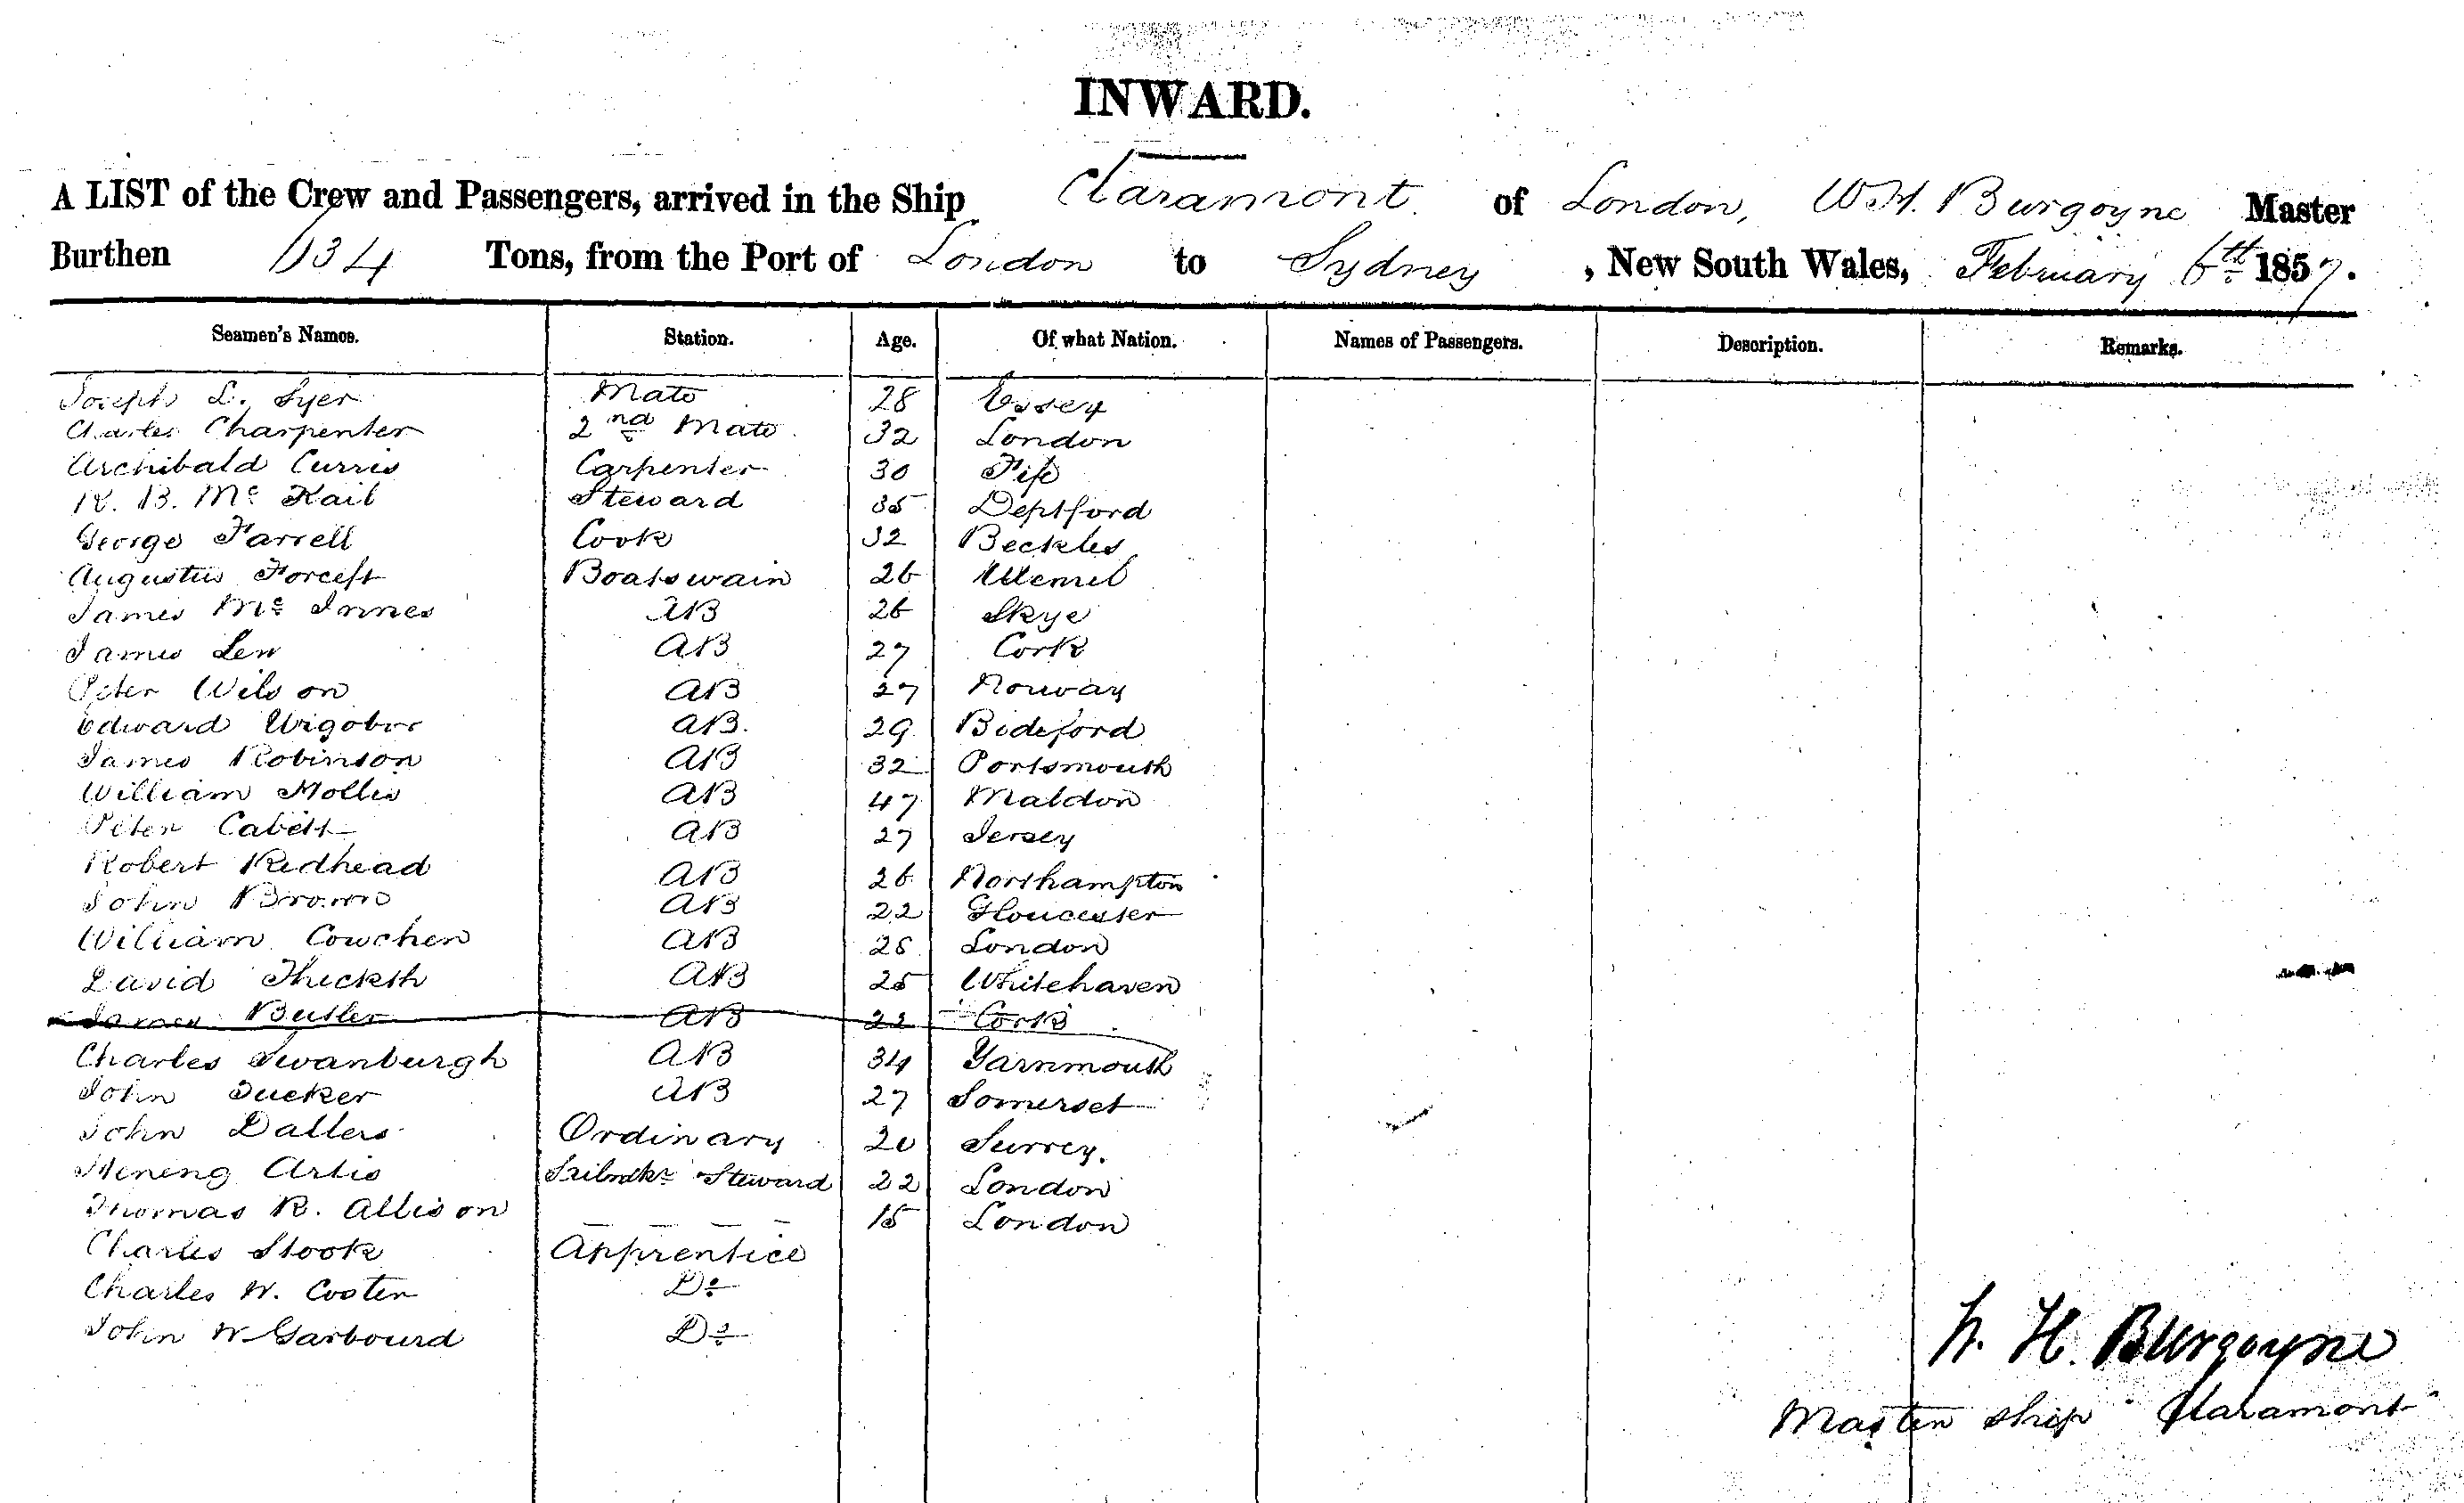 INWARD.
A LIST of the Crew and Passengers, arrived in the Ship Claramont of London, W.H. Burgoyne Master
Burthen Tons, from the Port of London to Sydney, New South Wales, February 6th 1857.
Seamen's Names. Station. Age. Of what Nation. Names of Passengers. Description. Remarks.
Joseph L. Syer Mate 28 Essex
Charles Charpenter 2nd Mate 32 London
Archibald Currie Carpenter 30 Fife
R. B. Mc Kail Steward 35 Deptford
George Farrell Cook 32 Beckles
Augustus Boatswain 26 Memel
James Mc Innes AB 26 Skye
James AB 27 Cork
Peter Wilson AB 27 Norway
Edward AB. 29 Bideford
James Robinson AB 32 Portsmouth
William AB 47 Maldon
Peter AB 27 Jersey
Robert Redhead AB 26 Northampton
John Brown AB 22 Gloucester
William Cowchen AB 28 London
David AB 25 Whitehaven
James Butler AB 22 Cork
Charles Swanburgh AB 34 Yarnmouth
John Tucker AB 27 Somerset
John Dallers Ordinary 20 Surrey.
Artis Steward 22 London
Thomas B. Allison — — — — 15 London
Charles Stook Apprentice
Charles W. Coster Do
John W Garbourd Do
W. H. Burgoyne
Master ship "Claramont"